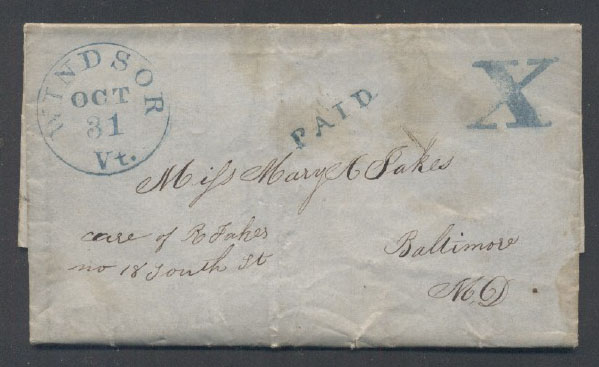 WINDSOR
OCT
31
Vt.
PAID
X
Miss Mary A Fakes
care of R Fakes
no 18 South St
Baltimore
MD